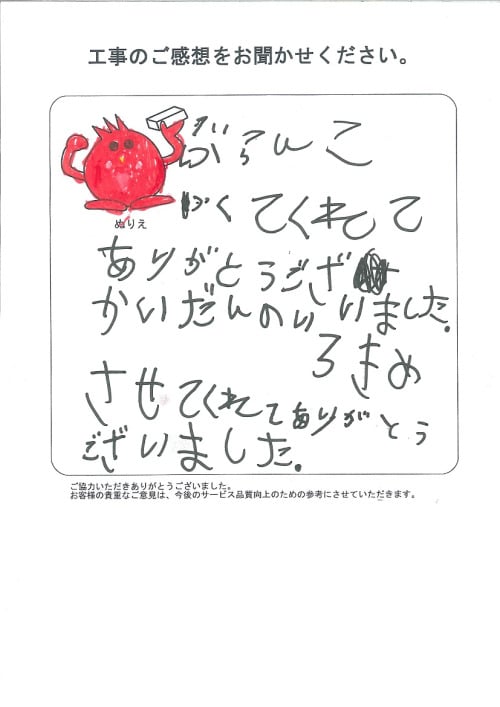 工事のご感想をお聞かせください。
ぶらんこ
てくれて
ぬりえ
ありがとうござ
かいだんのい いました。
ろきめ
させてくれてありがとう
ございました。
ご協力いただきありがとうございました。
お客様の貴重なご意見は、今後のサービス品質向上のための参考にさせていただきます。